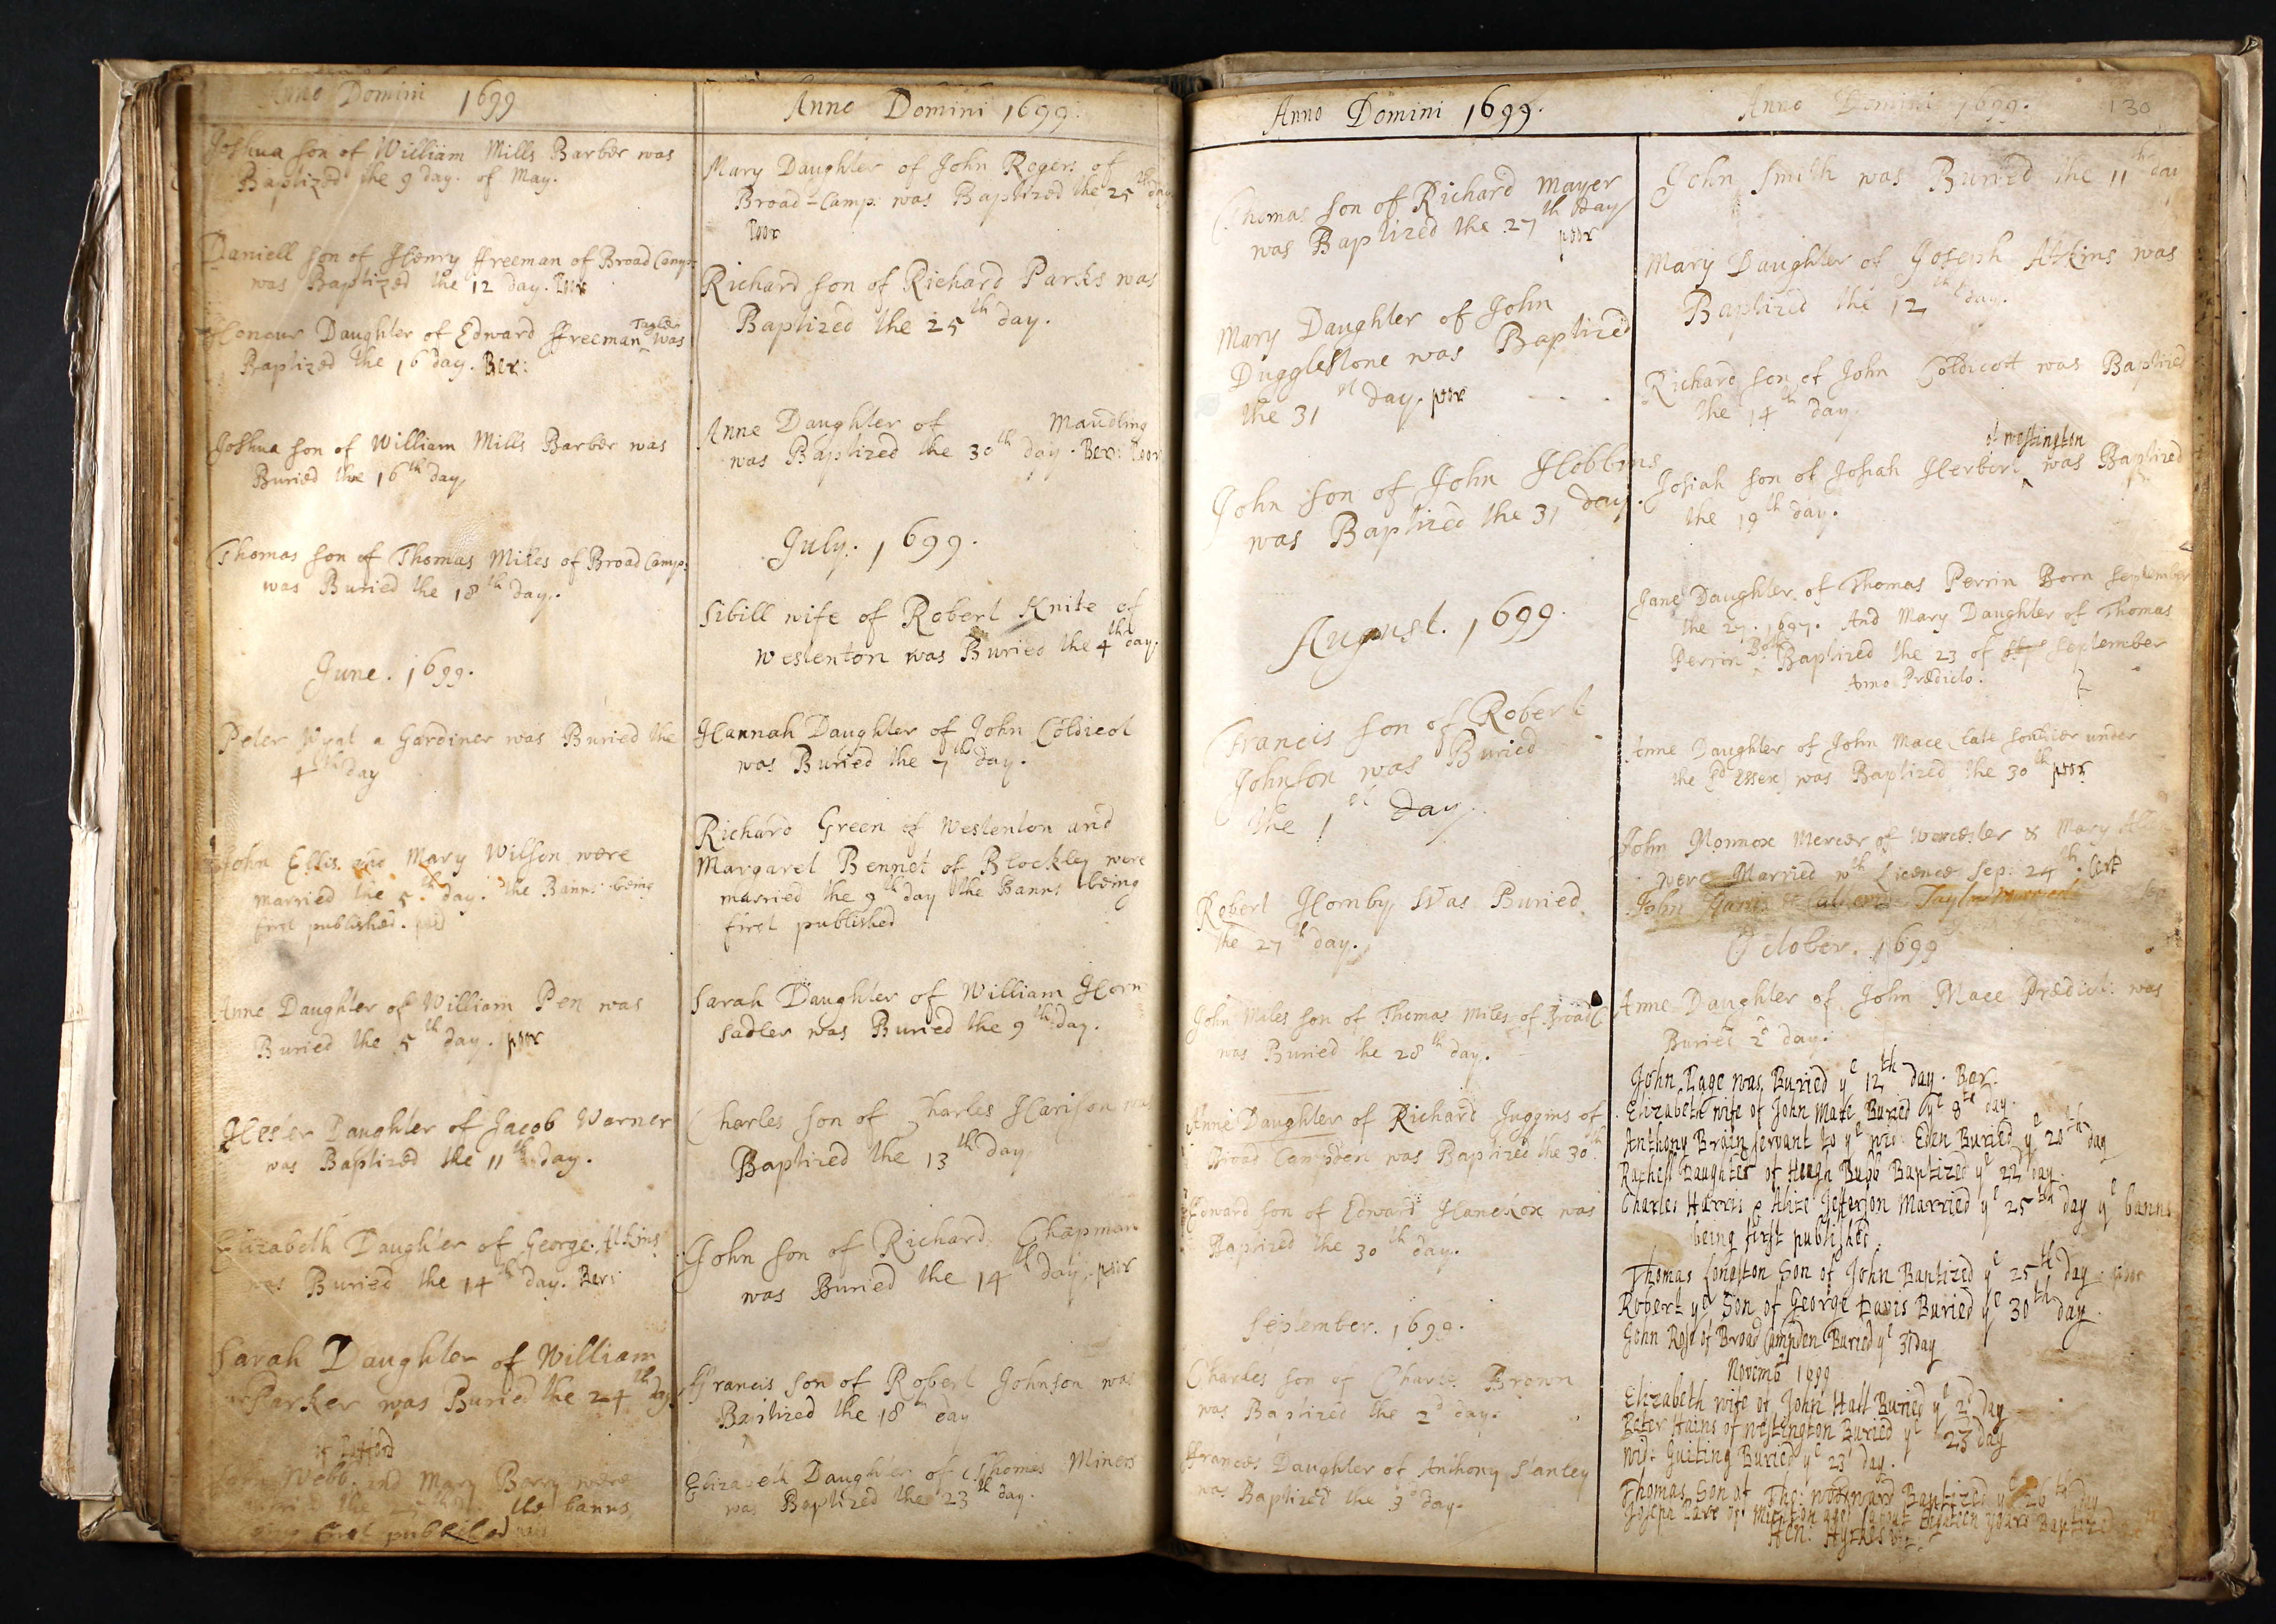 Anno Domini 1699
Joshua son of William Mills Barber was
Baptized the 9 day. of May.
Daniell son of Henry ffreeman of Broad Camp:
was Baptized the 12 day. Poor
Honour Daughter of Edward ffreeman Taylor was
Baptized the 16 day. Rex:
Joshua son of William Mills Barber was
Buried the 16th day
Thomas son of Thomas Miles of Broad Camp:
was Buried the 18th day.
June. 1699.
Peter Wyat a Gardiner was Buried the
4th day
John Ellis and Mary Wilson were
married the 5th day. the Banns being
first published.
Anne Daughter of William Pen was
Buried the 5th day. poor
Hester Daughter of Jacob Warner
was Baptized the 11th day.
Elizabeth Daughter of George Atkins
was Buried the 14th day.
Sarah Daughter of William
Parker was Buried the 24th day
John Webb and Mary Barry were
the banns
first published
Anno Domini 1699.
Mary Daughter of John Rogers of
Broad-Camp: was Baptized the 25th day
Poor
Richard son of Richard Parks was
Baptized the 25th day.
Anne Daughter of Maudling
was Baptized the 30th day. Rex: Poor
July. 1699.
Sibill wife of Robert Knite of
Westenton was Buried the 4th day.
Hannah Daughter of John Coldicot
was Buried the 7th day.
Richard Green of Westenton and
Margaret Bennet of Blockley were
married the 9 day the Banns being
first published
Sarah Daughter of William Horn
sadler was Buried the 9th day.
Charles son of Charles Harison was
Baptized the 13th day
John son of Richard Chapman
was Buried the 14th day. poor
ffrancis son of Robert Johnson was
Baptized the 18th day
Elizabeth Daughter of Thomas Miners
was Baptized the 23th day.
Anno Domini 1699.
Thomas son of Richard Mayer
was Baptized the 27th day
poor
Mary Daughter of John
Dugglestone was Baptized
the 31st day. poor
John son of John Hobbins
was Baptized the 31 day.
August. 1699.
Francis son of Robert
Johnson was Buried
the 1st day.
Robert Hornby Was Buried
the 27th day.
John Miles son of Thomas Miles of Broad C
was Buried the 28th day.
Anne Daughter of Richard Juggins of
Broad Campden was Baptized the 30th
Edward son of Edward Hanckox was
Baptized the 30th day.
September. 1699.
Charles son of Charles Brown
was Baptized the 2d day.
ffrances Daughter of Anthony Stanley
was Baptized the 3d day.
Anno Domini 1699. 130
John Smith was Buried the 11th day
Mary Daughter of Joseph Atkins was
Baptized the 12th day.
Richard son of John Coldicott was Baptized
the 14th day.
of westington
Josiah son of Josiah Herbert was Baptized
the 19th day.
Jane Daughter of Thomas Perrin Born September
the 27. 1697. And Mary Daughter of Thomas
Perrin Both Baptized the 23 of September
Anno Prædicto.
Anne Daughter of John Mace (late souldier under
the Ld Essex) was Baptized the 30th poor
John Monnox Mercer of Worcester & Mary
were Married wth Licence Sep: 24th. Cert
John Harris & Taylor married
October. 1699
Anne Daughter of John Mace Prædict: was
Buried 2d day.
John Page was Buried ye 12th day.
Elizabeth wife of John Mace Buried ye 8th day.
Anthony Brain servant to ye wid: Eden Buried ye 20th day
Rachell Daughter of Hough Bubb Baptized ye 22 day.
Charles Harris & Alize Jefferson Married ye 25th day ye banns
being first published.
Thomas Longston Son of John Baptized ye 25th day. poor
Robert ye Son of George Davis Buried ye 30th day.
John Rose of Broad Campden Buried ye 31 day
Novemb 1699
Elizabeth wife of John Hall Buried ye 2d day
Peter Hains of westington Buried ye 23 day
wid: Guiting Buried ye 23d day.
Thomas Son of Tho: woodward Baptized ye 26th day
Joseph of Mickton aged about Eighteen years Baptized
Hen: Hyckes vic: